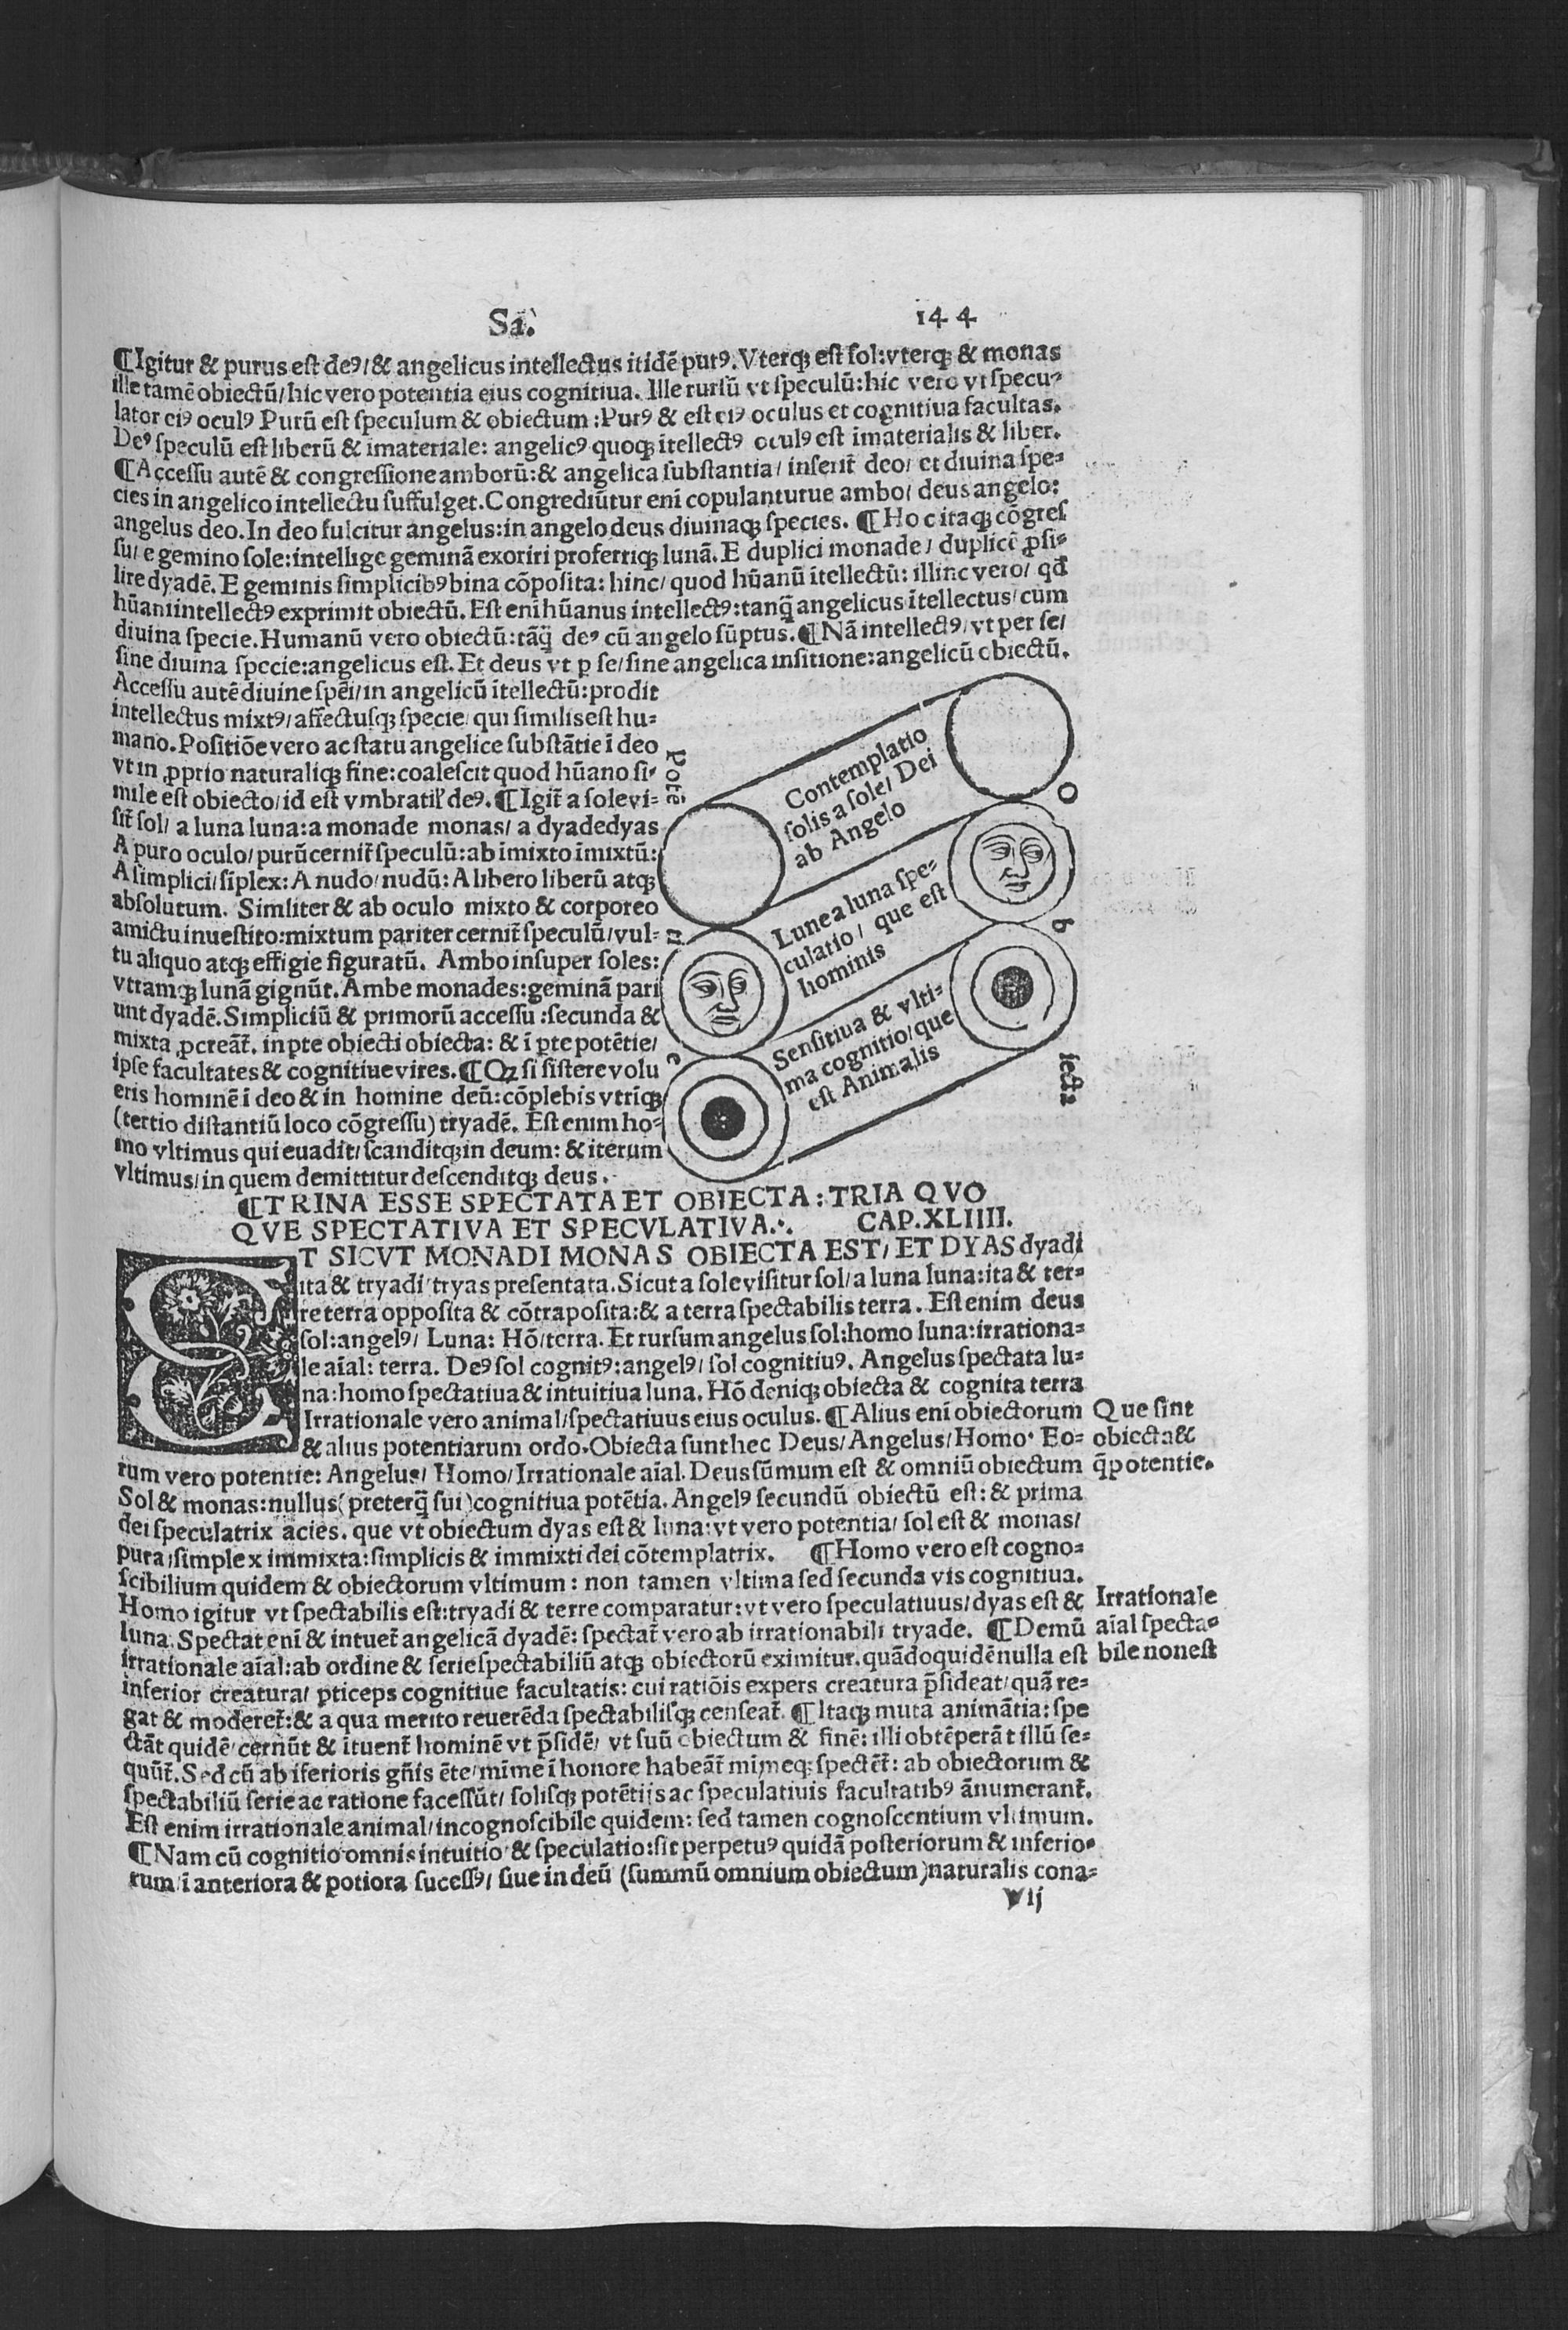 Sa. 144
¶Igitur & purus est deꝰ/ & angelicus intellectus itidē purꝰ. Vterqꝫ est sol: vterqꝫ & monas
ille tamē obiectū/ hic vero potentia eius cognitiua. Ille rursū vt speculū: hic vero vt specu-
lator eiꝰ oculꝰ Purū est speculum & obiectum: Purꝰ & est eiꝰ oculus et cognitiua facultas.
Deꝰ speculū est liberū & imateriale: angelicꝰ quoqꝫ ītellectꝰ oculꝰ est imaterialis & liber.
¶Accessu autē & congressione amborū: & angelica substantia/ inserit̄ deo/ et diuina spe-
cies in angelico intellectu suffulget. Congrediūtur enī copulanturue ambo/ deus angelo:
angelus deo. In deo fulcitur angelus: in angelo deus diuinaqꝫ species. ¶Hoc itaqꝫ cōgres
su/ e gemino sole: intellige geminā exoriri proferriqꝫ lunā. E duplici monade/ duplicē ꝓsi-
lire dyadē. E geminis simplicibꝰ bina cōposita: hinc/ quod hūanū ītellectū: illinc vero/ qđ
hūani intellectꝰ exprimit obiectū. Est enī hūanus intellectꝰ: tanq̄ angelicus ītellectus/ cum
diuina specie. Humanū vero obiectū: tāq̄ deꝰ cū angelo sūptus. ¶Nā intellectꝰ/ vt per se/
sine diuina specie: angelicus est. Et deus vt ꝑ se/ sine angelica insitione: angelicū obiectū.
Accessu autē diuine spēi/ in angelicū ītellectū: prodit
intellectus mixtꝰ/ affectusqꝫ specie/ qui similis est hu-
mano. Positiōe vero ac statu angelice substātie ī deo
vt in ꝓprio naturaliqꝫ fine: coalescit quod hūano si-
mile est obiecto/ id est vmbratil' deꝰ. ¶Igit̄ a sole vi-
sit̄ sol/ a luna luna: a monade monas/ a dyade dyas
A puro oculo/ purū cernit̄ speculū: ab imixto īmixtū:
A simplici/ siplex: A nudo/ nudū: A libero liberū atqꝫ
absolutum. Simliter & ab oculo mixto & corporeo
amictu inuestito: mixtum pariter cernit̄ speculū/ vul-
tu aliquo atqꝫ effigie figuratū. Ambo insuper soles:
vtramqꝫ lunā gignūt. Ambe monades: geminā pari
unt dyadē. Simpliciū & primorū accessu: secunda &
mixta ꝓcreāt̄. in ꝑte obiecti obiecta: & ī ꝑte potētie/
ipse facultates & cognitiue vires. ¶Qꝫ si sistere volu
eris hominē ī deo & in homine deū: cōplebis vtrīqꝫ
(tertio distantiū loco cōgressu) tryadē. Est enim ho-
mo vltimus qui euadit/ scanditqꝫ in deum: & iterum
vltimus/ in quem demittitur descenditqꝫ deus.
Pote
n
e
Contemplatio
solis a sole/ Dei
ab Angelo
Lune a luna spe-
culatio/ que est
hominis
Sensitiua & vlti-
ma cognitio/ que
est Animalis
O
b
iecta
¶TRINA ESSE SPECTATA ET OBIECTA: TRIA QVO
QVE SPECTATIVA ET SPECVLATIVA. CAP. XLIIII.
ET SICVT MONADI MONAS OBIECTA EST/ ET DYAS dyadi
ita & tryadi/ tryas presentata. Sicut a sole visitur sol/ a luna luna: ita & ter-
re terra opposita & cōtraposita: & a terra spectabilis terra. Est enim deus
sol: angelꝰ/ Luna: Hō/ terra. Et rursum angelus sol: homo luna: irrationa-
le aīal: terra. Deꝰ sol cognitꝰ: angelꝰ/ sol cognitiuꝰ. Angelus spectata lu-
na: homo spectatiua & intuitiua luna. Hō deniqꝫ obiecta & cognita terra
Irrationale vero animal/ spectatiuus eius oculus. ¶Alius enī obiectorum
& alius potentiarum ordo. Obiecta sunt hec Deus/ Angelus/ Homo. Eo-
rum vero potentie: Angelus/ Homo/ Irrationale aīal. Deus sūmum est & omniū obiectum
Sol & monas: nullus (preterq̄ sui) cognitiua potētia. Angelꝰ secundū obiectū est: & prima
dei speculatrix acies. que vt obiectum dyas est & luna: vt vero potentia/ sol est & monas/
pura/ simplex immixta: simplicis & immixti dei cōtemplatrix. ¶Homo vero est cogno-
scibilium quidem & obiectorum vltimum: non tamen vltima sed secunda vis cognitiua.
Homo igitur vt spectabilis est: tryadi & terre comparatur: vt vero speculatiuus/ dyas est &
luna. Spectat enī & intuet̄ angelicā dyadē: spectat̄ vero ab irrationabili tryade. ¶Demū
irrationale aīal: ab ordine & serie spectabiliū atqꝫ obiectorū eximitur. quādoquidē nulla est
inferior creatura/ ꝑticeps cognitiue facultatis: cui ratiōis expers creatura p̄sideat/ quā re-
gat & moderet̄: & a qua merito reuerēda spectabilisqꝫ censeat̄. ¶Itaqꝫ muta animātia: spe
ctāt quidē/ cernūt & ītuent̄ hominē vt p̄sidē/ vt suū obiectum & finē: illi obtēperāt illū se-
quūt̄. Sed cū ab īferioris gn̄is ēte/ mīme ī honore habeāt̄ mīmeqꝫ spectēt̄: ab obiectorum &
spectabiliū serie ac ratione facessūt/ solisqꝫ potētijs ac speculatiuis facultatibꝰ ānumerant̄.
Est enim irrationale animal/ incognoscibile quidem: sed tamen cognoscentium vltimum.
¶Nam cū cognitio omnis intuitio & speculatio: sit perpetuꝰ quidā posteriorum & inferio-
rum/ ī anteriora & potiora sucessꝰ/ siue in deū (summū omnium obiectum) naturalis cona-
Que sint
obiecta &
q̄ potentie.
Irrationale
aīal specta-
bile non est
V ij